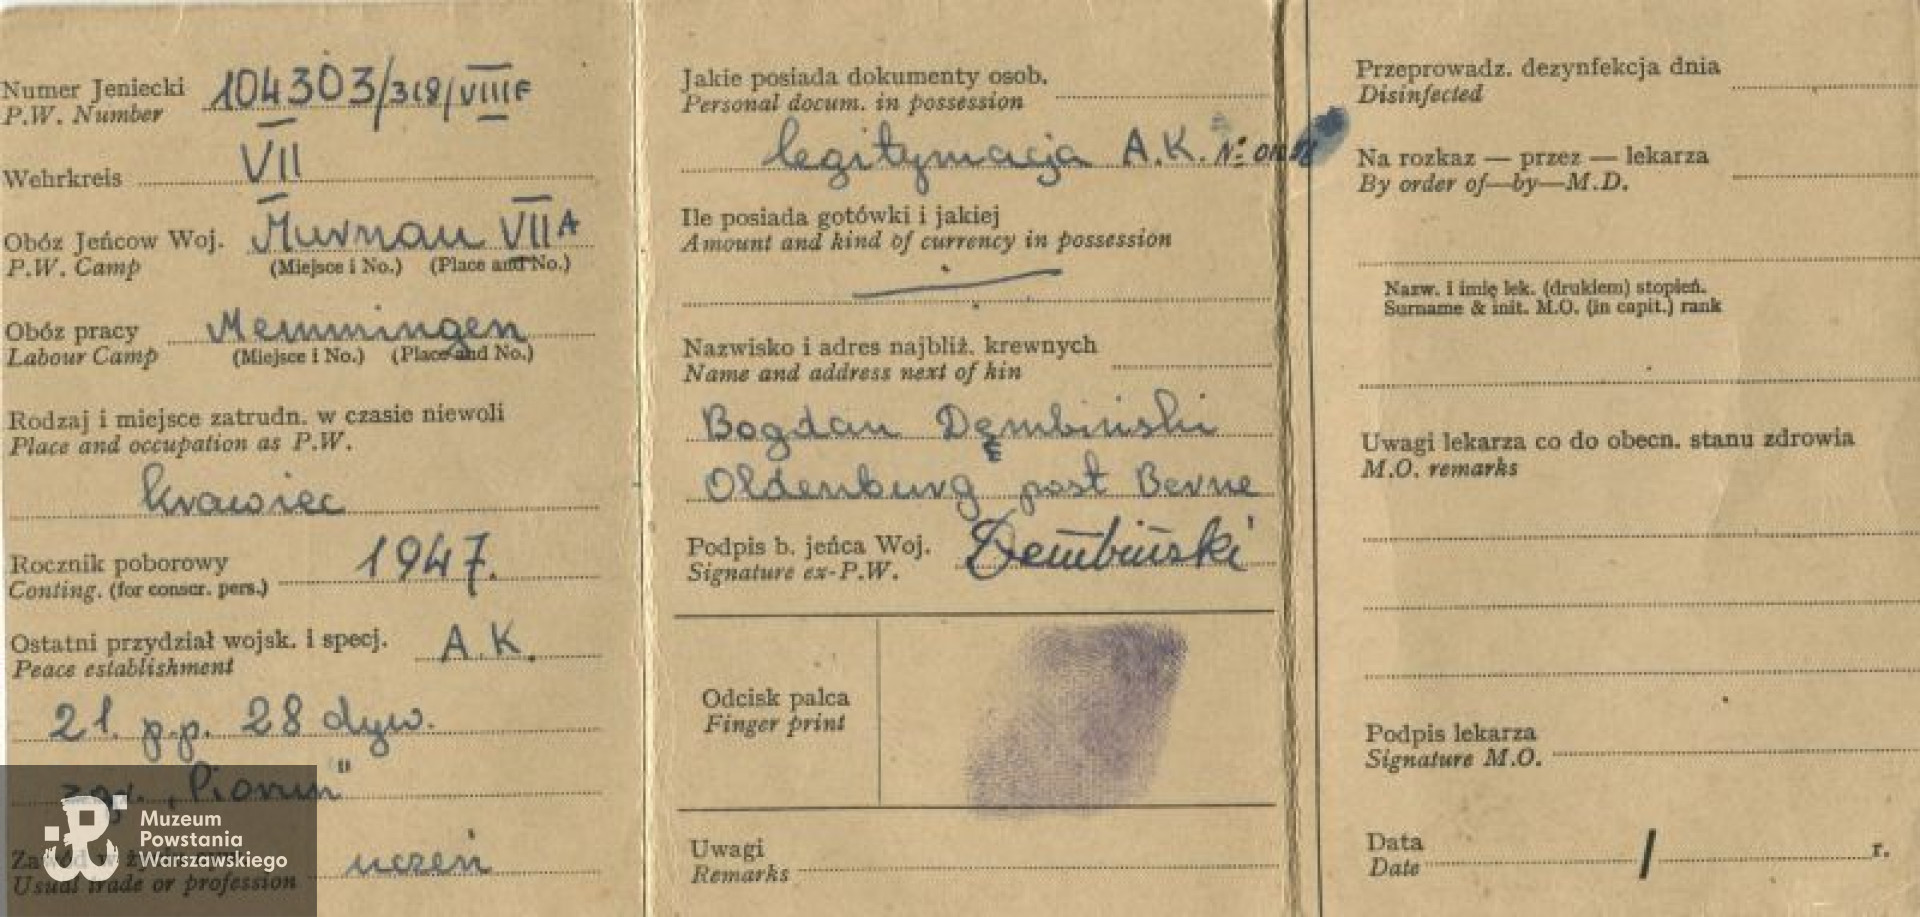 Numer Jeniecki 104303/318/VIIIF
P.W. Number
Wehrkreis VII
Obóz Jeńcow Woj. Murnau VII A
P.W. Camp (Miejsce i No.) (Place and No.)
Obóz pracy Memmingen
Labour Camp (Miejsce i No.) (Place and No.)
Rodzaj i miejsce zatrudn. w czasie niewoli
Place and occupation as P.W.
krawiec
Rocznik poborowy 1947.
Conting. (for conscr. pers.)
Ostatni przydział wojsk. i specj. A.K.
Peace establishment
21. p.p. 28 dyw.
"Piorun"
uczeń
Usual trade or profession
Muzeum
Powstania
Warszawskiego
Jakie posiada dokumenty osob.
Personal docum. in possession
legitymacja A.K. No
Ile posiada gotówki i jakiej
Amount and kind of currency in possession
Nazwisko i adres najbliż. krewnych
Name and address next of kin
Bogdan Dembiński
Oldenburg post Berne
Podpis b. jeńca Woj. Dembiński
Signature ex-P.W.
Odcisk palca
Finger print
Uwagi
Remarks
Przeprowadz. dezynfekcja dnia
Disinfected
Na rozkaz — przez — lekarza
By order of—by—M.D.
Nazw. i imię lek. (drukiem) stopień.
Surname & init. M.O. (in capit.) rank
Uwagi lekarza co do obecn. stanu zdrowia
M.O. remarks
Podpis lekarza
Signature M.O.
Data / r.
Date